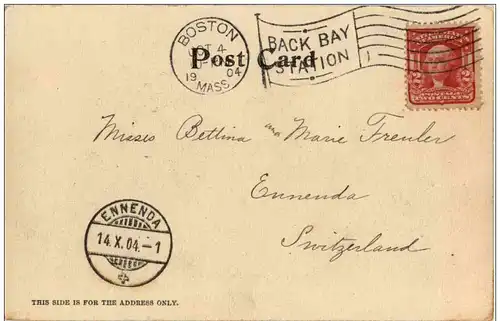 BOSTON
OCT 4
1904
MASS
BACK BAY
STATION
Post Card
TWO CENTS
Misses Bettina and Marie Freuler
Ennenda
Switzerland
ENNENDA
14.X.04.-1
THIS SIDE IS FOR THE ADDRESS ONLY.